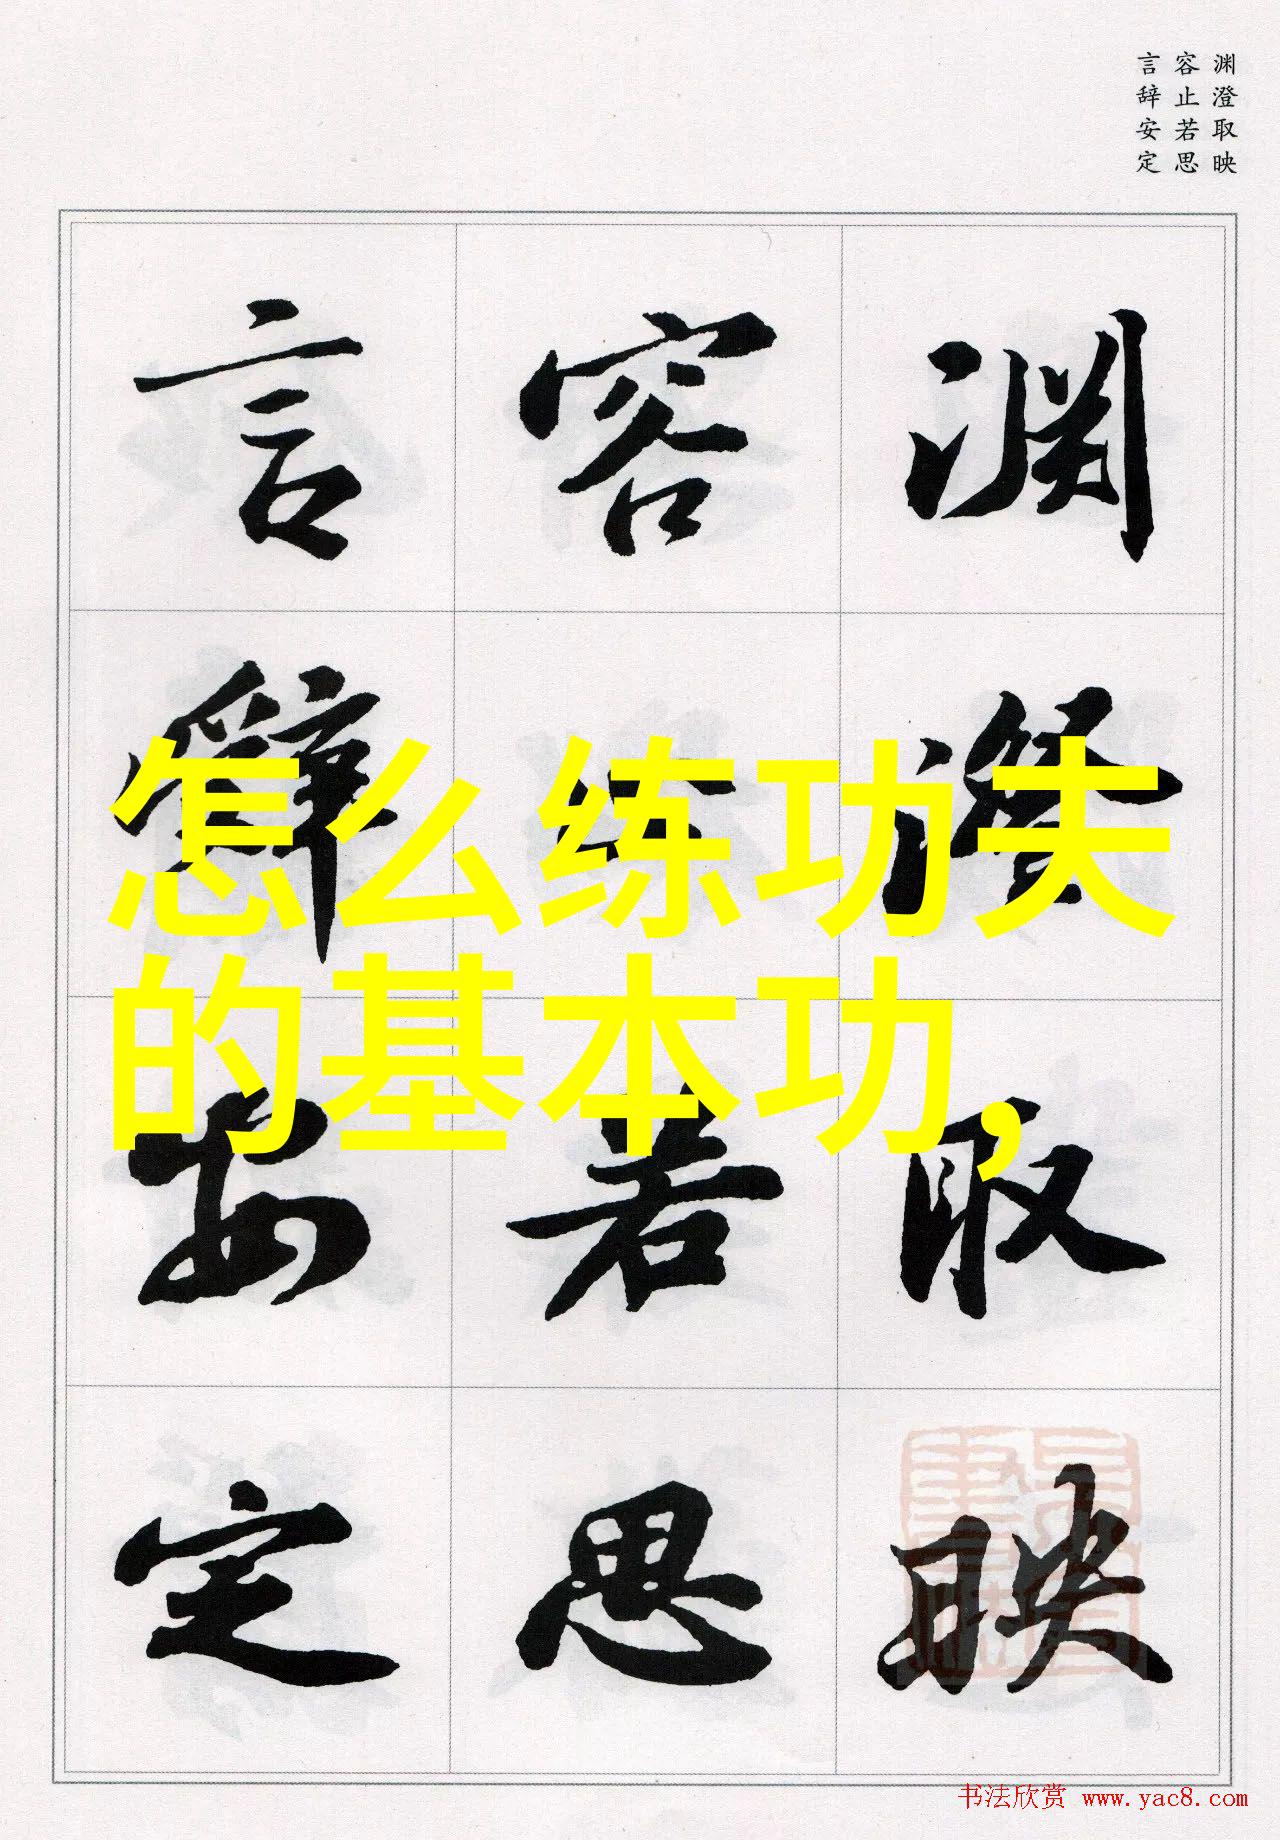 渊澄取映
容止若思
言辞安定
渊澄取映
容止若思
言辞安定
怎么练功夫
的基本功,
书法欣赏 www.yac8.com